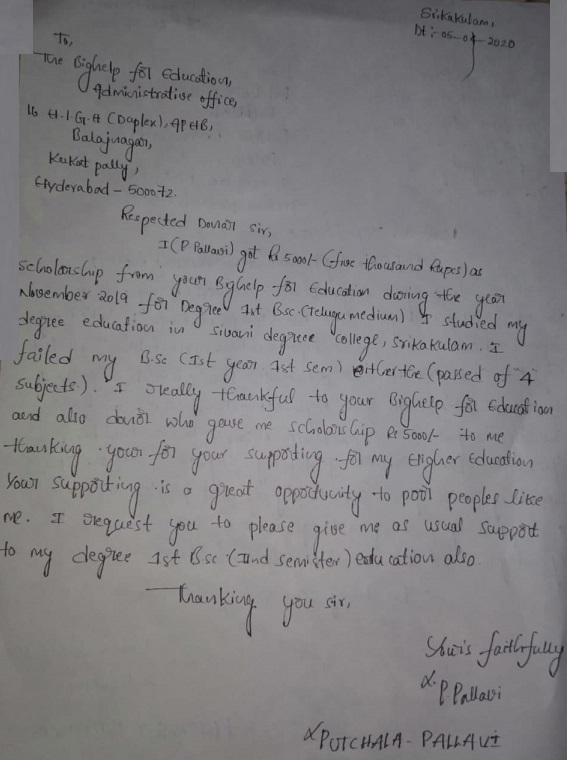 Srikakulam,
Dt :- 05-04-2020
To,
The Bighelp for Education,
Administrative office,
16 H.I.G.H (Duplex), APHB,
Balajnagar,
Kukat pally,
Hyderabad - 500072.
Respected Donar sir,
I (P Pallavi) got Rs 5000/- (five thousand Rupes) as
scholarship from your Bighelp for Education during the year
November 2019 for Degree 1st Bsc (Telugu medium) I studied my
degree education in sivani degree college, srikakulam. I
failed my B.sc (Ist year 1st sem) eitherthe (passed of "4"
subjects). I really thankful to your Bighelp for Education
and also donor who gave me scholarship Rs 5000/- to me
thanking your for your supporting for my Higher Education
Your supporting is a great opportunity to poor peoples like
me. I request you to please give me as usual support
to my degree 1st B.sc (IInd semister) education also.
Thanking you sir,
Your's faithfully
P. Pallavi
PUTCHALA - PALLAVI